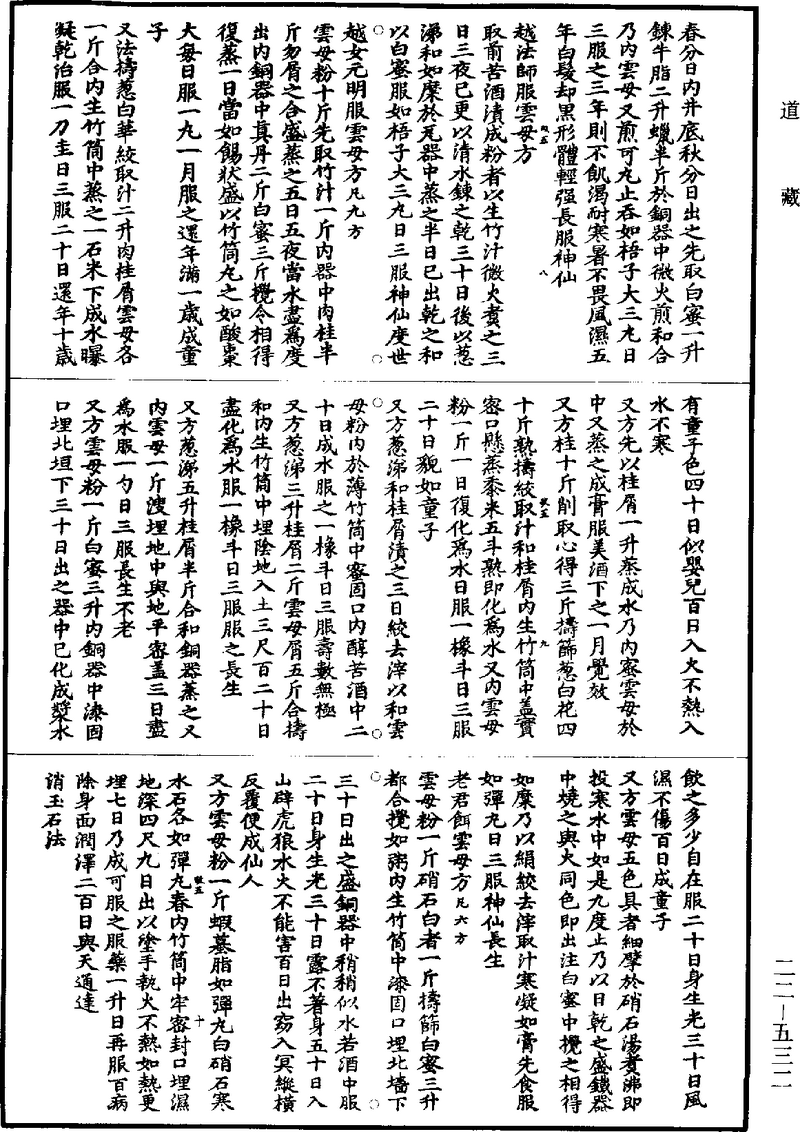 道藏
春分日內井底秋分日出之先取白蜜一升
鍊牛脂二升蠟半斤於銅器中微火煎和合
乃內雲母又煎可丸止吞如梧子大三丸日
三服之三年則不飢渴耐寒暑不畏風濕五
年白髮却黑形體輕强長服神仙
越法師服雲母方
取前苦酒漬成粉者以生竹汁微火煑之三
日三夜已更以清水鍊之乾三十日後以葱
涕和如糜於瓦器中蒸之半日已出乾之和
以白蜜服如梧子大三丸日三服神仙度世
越女元明服雲母方凡九方
雲母粉十斤先取竹汁一斤內器中肉桂半
斤勿屑之合盛蒸之五日五夜當水盡爲度
出內銅器中真丹二斤白蜜三斤攪令相得
復蒸一日當如餳狀盛以竹筒丸之如酸棗
大每日服一丸一月服之還年滿一歲成童
子
又法擣葱白華絞取汁二升肉桂屑雲母各
一斤合內生竹筒中蒸之一石米下成水曝
凝乾治服一刀圭日三服二十日還年十歲
有童子色四十日似嬰兒百日入火不熱入
水不寒
又方先以桂屑一升蒸成水乃內蜜雲母於
中又蒸之成膏服美酒下之一月覺效
又方桂十斤削取心得三斤擣篩葱白花四
十斤熟擣絞取汁和桂屑內生竹筒中蓋寶
密口懸蒸黍米五斗熟即化爲水又內雲母
粉一斤一日復化爲水日服一橡斗日三服
二十日貌如童子
又方葱涕和桂屑漬之三日絞去滓以和雲
母粉內於薄竹筒中蜜固口內醇苦酒中二
十日成水服之一橡斗日三服壽數無極
又方葱涕三升桂屑二斤雲母屑五斤合擣
和內生竹筒中埋陰地入土三尺百二十日
盡化爲水服一橡斗日三服服之長生
又方葱涕五升桂屑半斤合和銅器蒸之又
內雲母一斤溲埋地中與地平密蓋三日盡
爲水服一勺日三服長生不老
又方雲母粉一斤白蜜三升內銅器中漆固
口埋北垣下三十日出之器中已化成漿水
飲之多少自在服二十日身生光三十日風
濕不傷百日成童子
又方雲母五色具者細擘於硝石湯煑沸即
投寒水中如是九度止乃以日乾之盛鐵器
中燒之與火同色即出注白蜜中攪之相得
如糜乃以絹絞去滓取汁寒凝如膏先食服
如彈丸日三服神仙長生
老君餌雲母方凡六方
雲母粉一斤硝石白者一斤擣篩白蜜三升
都合攪如粥內生竹筒中漆固口埋北墻下
三十日出之盛銅器中稍稍似水若酒中服
二十日身生光三十日露不著身五十日入
山辟虎狼水火不能害百日出窈入冥縱橫
反覆便成仙人
又方雲母粉一斤蝦蟇脂如彈丸白硝石寒
水石各如彈丸舂內竹筒中牢密封口埋濕
地深四尺九日出以塗手執火不熱如熱更
埋七日乃成可服之服藥一升日再服百病
除身面潤澤二百日與天通達
消玉石法
二二—五三二